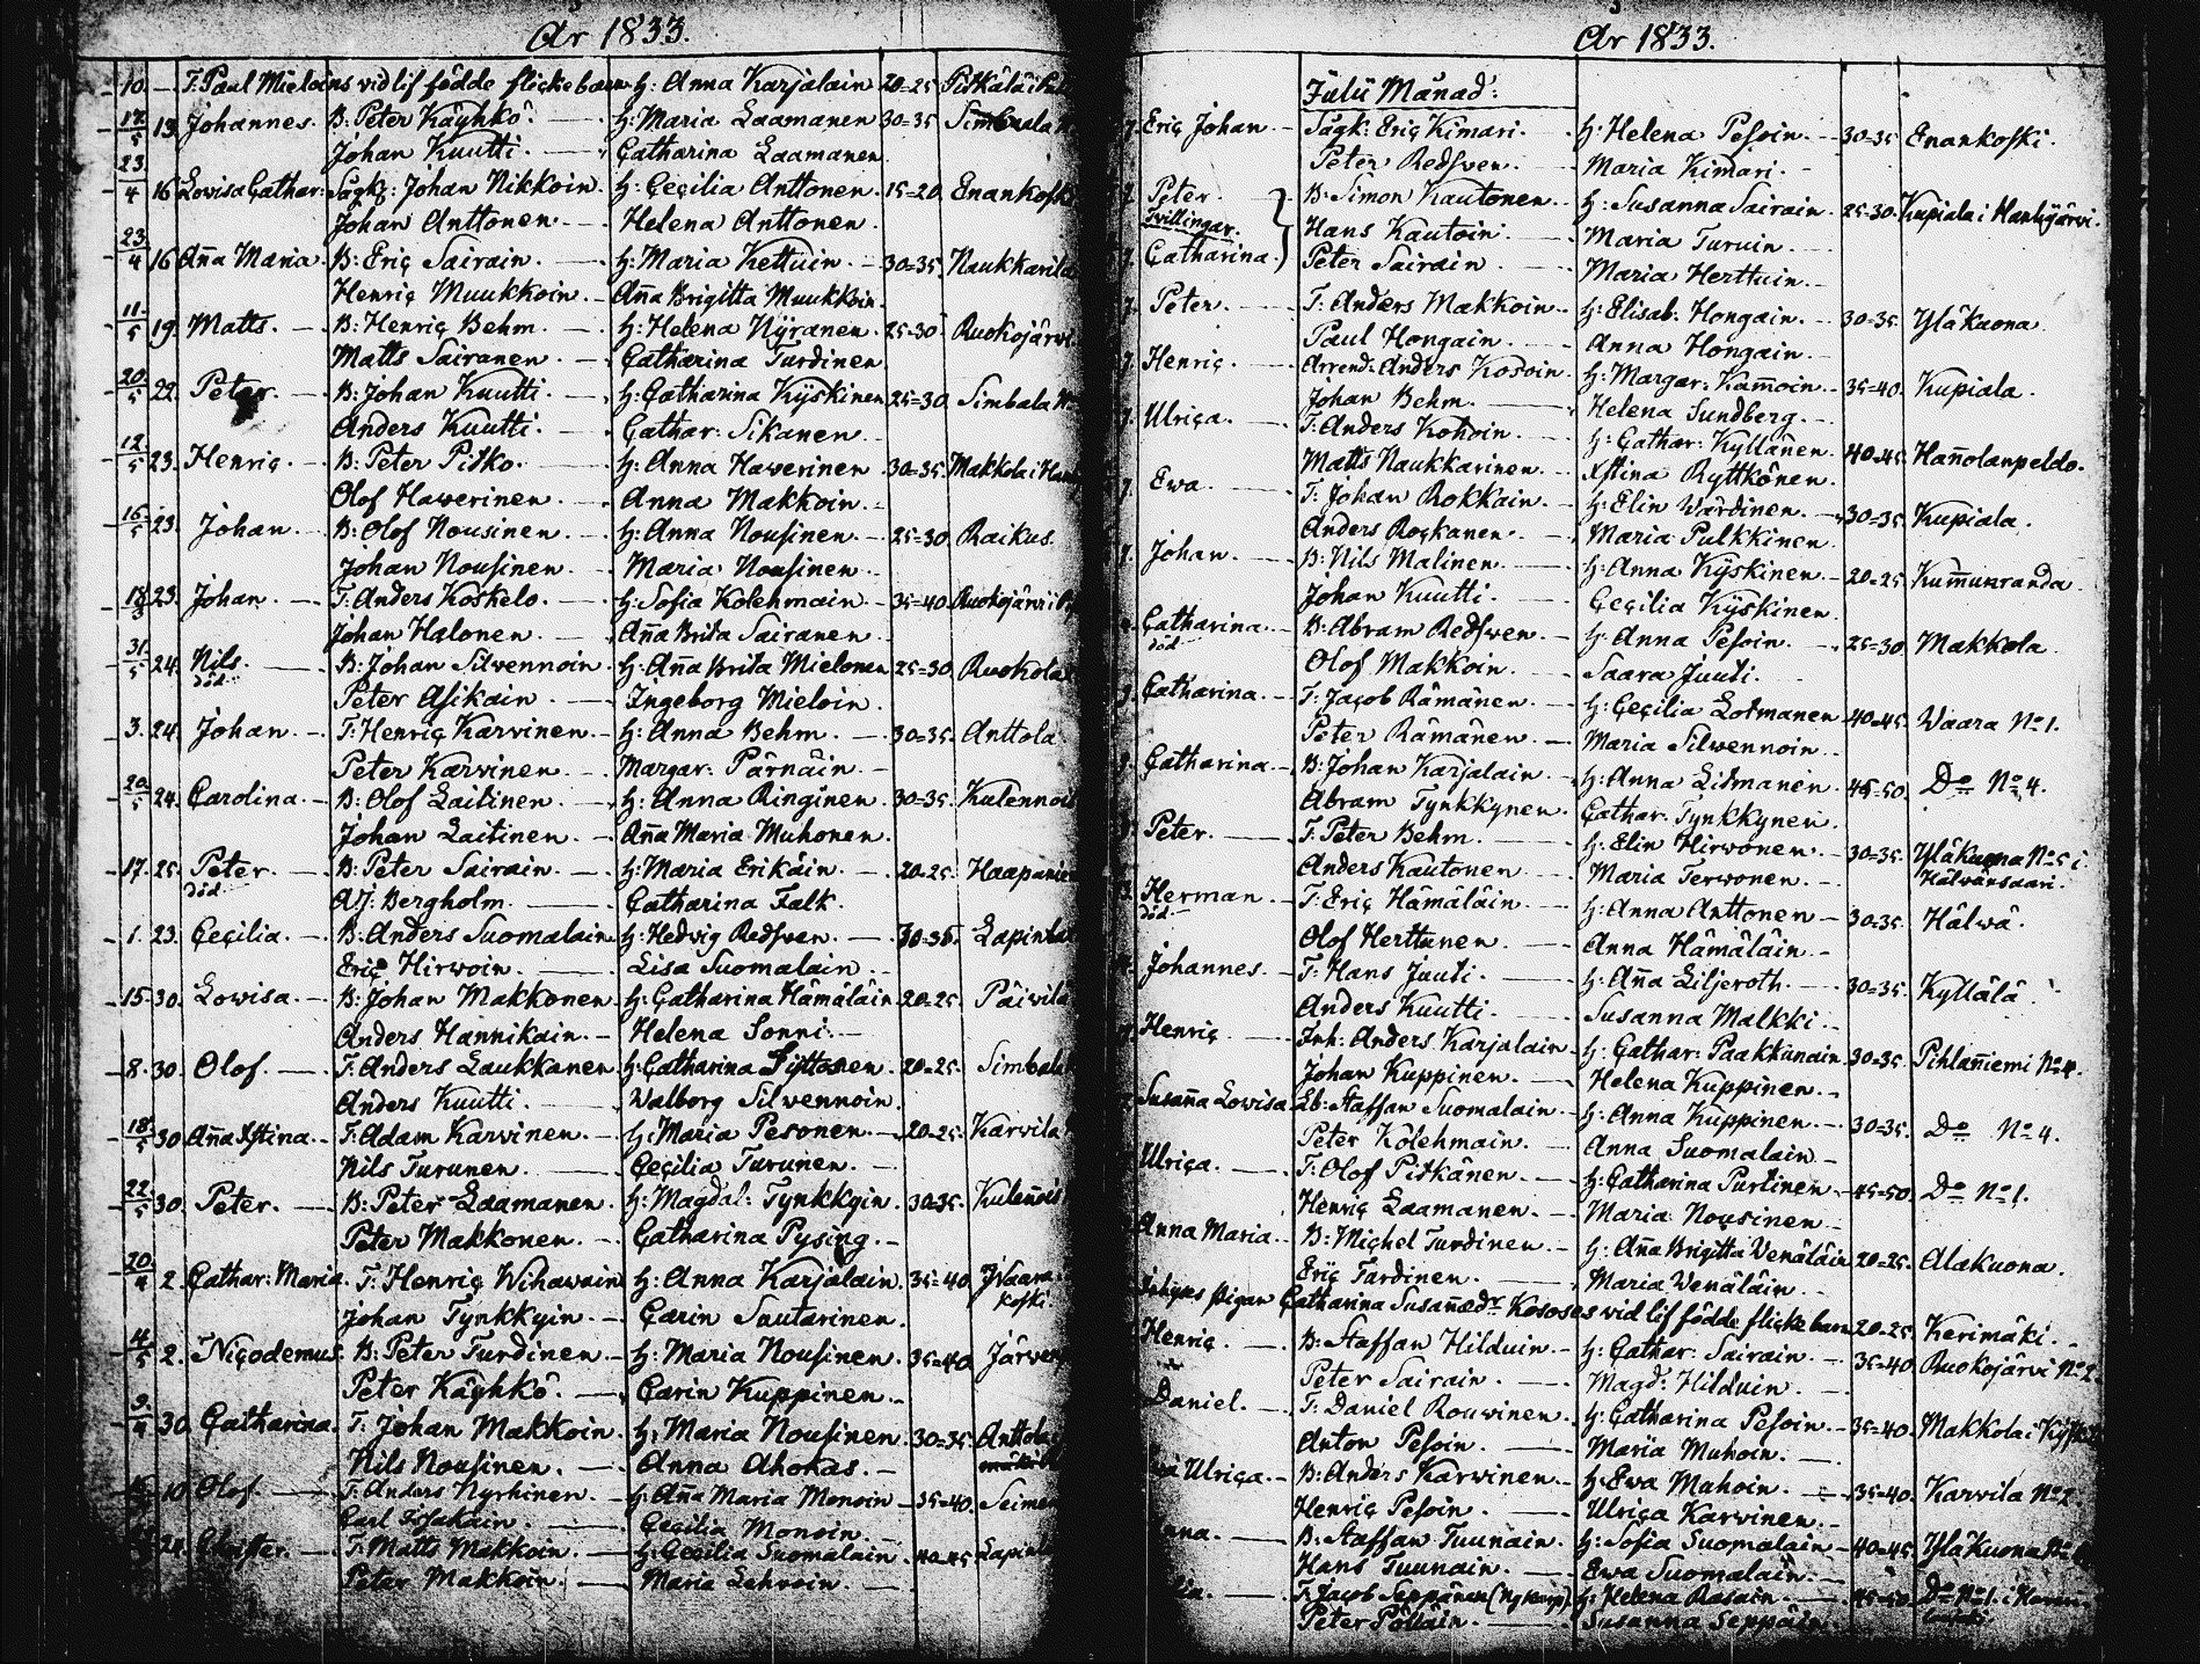 År 1833.
10. – T. Paul Mieloins vid lif födde flickebarn H: Anna Karjalain 20=25
17/5 13. Johannes. B: Peter Käyhkö. H: Maria Laamanen 30=35 Simbala
Johan Kuutti. Catharina Laamanen.
23/4 16 Lovisa Cathar: Sågk: Johan Nikkoin. H: Cecilia Anttonen. 15=20. Enankoski
Johan Anttonen. Helena Anttonen.
23/4 16 Anna Maria. B: Eric Sairain. H: Maria Kettuin. 30=35. Naukkarila
Henric Muukkoin. Anna Brigitta Muukkoin.
11/5 19. Matts. B: Henric Behm. H: Helena Nyränen. 25=30 Ruokojärvi
Matts Sairanen. Catharina Turdinen
20/5 22. Peter. B: Johan Kuutti. H: Catharina Kyskinen 25=30 Simbala
Anders Kuutti. Cathar: Sikanen
12/5 23. Henric. B: Peter Pitko. H: Anna Hawerinen 30=35. Makkola i
Olof Hawerinen. Anna Makkoin.
16/5 23. Johan. B: Olof Nousinen. H: Anna Nousinen. 25=30. Raikus.
Johan Nousinen. Maria Nousinen.
23. Johan. T: Anders Koskelo. H: Sofia Kolehmain. 35=40. Ruokojärvi
Johan Halonen. Anna Brita Sairanen
31/5 24. Nils. B: Johan Silvennoin. H: Anna Brita Mielonen 25=30. Ruokola
död. Peter Asikain. Ingeborg Mieloin.
3. 24. Johan. T: Henric Karvinen. H: Anna Behm. 30=35. Anttola
Peter Karvinen. Margar: Pärnäin.
20/5 24. Carolina. B: Olof Laitinen. H: Anna Ringinen. 30=35. Kulennoi
Johan Laitinen. Anna Maria Muhonen.
17. 25. Peter. B: Peter Sairain. H: Maria Erikäin. 20=25. Haapanie
död A.J: Bergholm. Catharina Falk.
1. 23. Cecilia. B: Anders Suomalain. H: Hedvig Redsven. 30=35. Lapinla
Eric Hirwoin. Lisa Suomalain.
15. 30. Lowisa. B: Johan Makkonen. H: Catharina Hämäläin. 20=25. Päivilä
Anders Hannikain. Helena Sonni.
8. 30. Olof. T: Anders Laukkanen. H: Catharina 20=25. Simbala
Anders Kuutti. Walborg Silvennoin.
18/5 30 Anna Xstina. T: Adam Karvinen. H: Maria Pesonen. 20=25. Karvila
Nils Turunen. Cecilia Turunen.
22/5 30. Peter. B: Peter Laamanen. H: Magdal: Tynkkyin. 30=35. Kulennoi
Peter Makkonen. Catharina Pysing.
20/4 2. Cathar: Maria. T: Henric Wihawain H: Anna Karjalain. 35=40 Ivaara
koski.
Johan Tynkkyin. Carin Sautarinen.
4/5 2. Nicodemus. B: Peter Turdinen. H: Maria Nousinen. 35=40 Järven
Peter Käyhkö. Carin Kuppinen.
9/4 30. Catharina. T: Johan Makkoin. H: Maria Nousinen. 30=35. Anttola
Nils Nousinen. Anna Ahokas.
10. Olof. T: Anders Nyrhinen. H: Anna Maria Monoin 35=40. Seime
Carl Cecilia Monoin.
24. T: Matts Makkoin. H: Cecilia Suomalain. 40=45 Lapinla
Peter Makkoin. Maria Lehvoin.
År 1833.
Julii Månad:
7. Eric Johan. Sågk: Eric Kimari. H: Helena Pesoin. 30=35 Enankoski.
Peter Redsven. Maria Kimari.
7. Peter. B: Simon Kautonen. H: Susanna Sairain. 25=30. Kupiala i Hankijärvi.
Tvillingar. Hans Kautoin. Maria Turuin.
7. Catharina. Peter Sairain. Maria Herttuin.
7. Peter. T: Anders Makkoin. H: Elisab: Hongain. 30=35. Yläkuona.
Paul Hongain. Anna Hongain.
7. Henric. Arrend: Anders Kosoin. H: Margar: Kammoin. 35=40. Kupiala.
Johan Behm. Helena Sundberg.
7. Ulrica. T: Anders Kohoin. H: Cathar: Kyllänen. 40=45. Hannolanpeldo.
Matts Naukkarinen. Xstina Ryttkönen.
7. Ewa. T: Johan Rokkain. H: Elin Wärdinen. 30=35. Kupiala.
Anders Rockanen. Maria Pulkkinen.
7. Johan. B: Nils Malinen. H: Anna Kyskinen. 20=25. Kummunranda.
Johan Kuutti. Cecilia Kyskinen.
Catharina. B: Abram Redsven. H: Anna Pesoin. 25=30 Makkola.
död Olof Makkoin. Saara Juuti.
9. Catharina. T: Jacob Rämänen. H: Cecilia Lotmanen 40=45. Waara No 1.
Peter Rämänen. Maria Silvennoin.
9. Catharina. B: Johan Karjalain. H: Anna Litmanen. 45=50. Do No 4.
Abram Tynkkynen. Cathar: Tynkkynen.
Peter. T: Peter Behm. H: Elin Hirvonen. 30=35. Yläkuona No 5 i
Hälvänsaari.
Anders Kautonen. Maria Terwonen.
Herman. T: Eric Hämäläin. H: Anna Anttonen 30=35. Hälvä.
död. Olof Herttunen. Anna Hämäläin.
Johannes. T: Hans Juuti. H: Anna Liljeroth. 30=35. Kyllälä.
Anders Kuutti. Susanna Malkki.
Henric. Inh: Anders Karjalain. H: Cathar: Paakkunain 30=35. Pihlanniemi No 4.
Johan Kuppinen. Helena Kuppinen.
Susanna Lowisa. Lb: Staffan Suomalain. H: Anna Kuppinen. 30=35. Do No 4.
Peter Kolehmain. Anna Suomalain.
Ulrica. T: Olof Pitkänen. H: Catharina Purtinen. 45=50. Do No 1.
Henric Laamanen. Maria Nousinen
Anna Maria. B: Michel Turdinen. H: Anna Brigitta Venäläin 20=25. Alakuona.
Eric Tardinen. Maria Venäläin.
pigan Catharina Susannædr Kososes vid lif födde flickebarn 20=25. Kerimäki.
Henric. B: Staffan Hilduin. H: Cathar: Sairain. 35=40 Ruokojärvi No 2
Peter Sairain. Magd: Hilduin.
Daniel. T: Daniel Rouvinen. H: Catharina Pesoin. 35=40. Makkola i
Anton Pesoin. Maria Muhoin.
Ulrica. B: Anders Karvinen. H: Ewa Muhoin. 35=40. Karvila No 2.
Henric Pesoin. Ulrica Karvinen.
B: Staffan Tuunain. H: Sofia Suomalain. 40=45. Yläkuona No
Hans Tuunain. Ewa Suomalain.
T: Jacob Seppänen H: Helena Rasain. 45=50. Do No 1. i
Peter Pöllain. Susanna Seppäin.